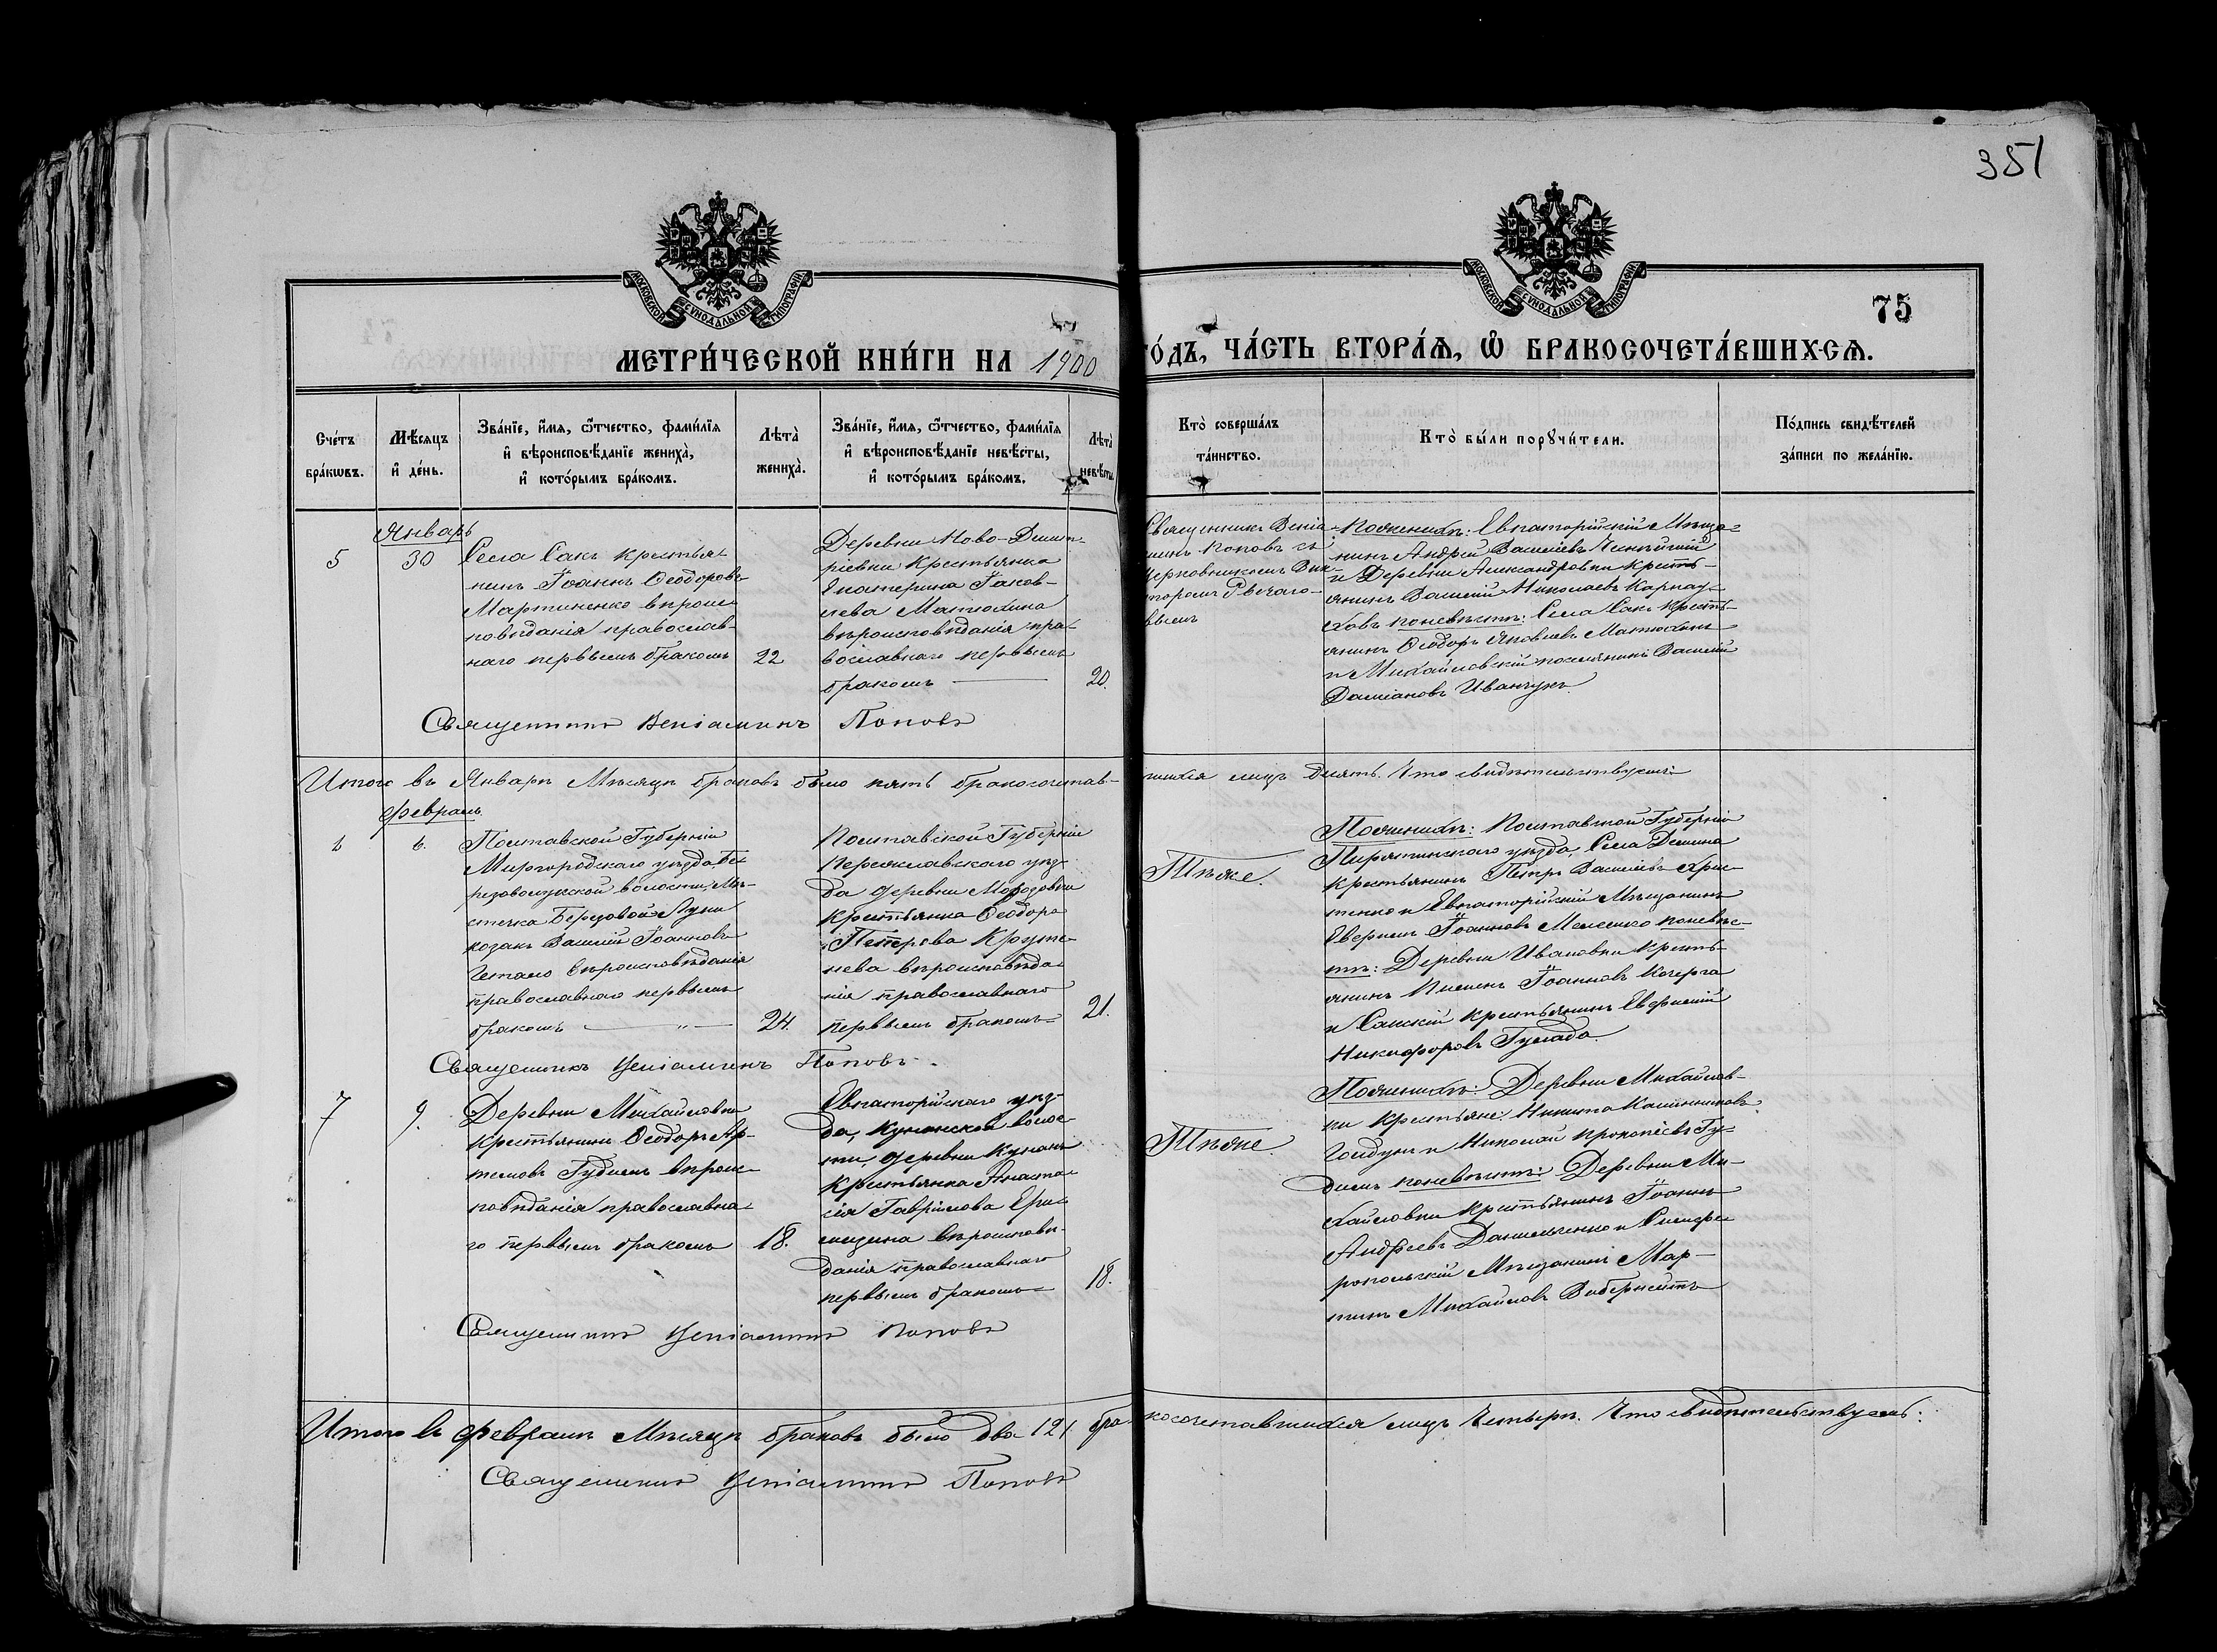 351
МОСКОВСКОЙ СУНОДАЛЬНОЙ ТИПОГРАФІИ
МОСКОВСКОЙ СУНОДАЛЬНОЙ ТИПОГРАФІИ
75
МЕТРИ́ЧЕСКОЙ КНИ́ГИ НА 1900
ГО́ДЪ, ЧА́СТЬ ВТОРА́Ѧ, Ѽ БРАКОСОЧЕТА́ВШИХСѦ.
Сче́тъ бра́кѡвъ.
Мѣ́сяцъ и҆ де́нь.
Зва́нїе, и҆́мя, ѻ҆́тчество, фами́лїя
и҆ вѣроисповѣ́данїе жениха̀,
и҆ кото́рымъ бра́комъ.
Лѣта̀ жениха̀.
Зва́нїе, и҆́мя, ѻ҆́тчество, фами́лїя
и҆ вѣроисповѣ́данїе невѣ́сты,
и҆ кото́рымъ бра́комъ.
Лѣта̀ невѣ́сты.
Кто̀ соверша́лъ та́инство.
Кто̀ бы́ли порꙋчи́тели.
По́дпись свидѣ́телей за́писи по жела́нїю.
Январь
5
30
Села Сакъ крестья-
нинъ Іоаннъ Ѳеодоровъ
Мартиненко вѣроис-
повѣданія православ-
наго первымъ бракомъ
22
Деревни Ново-Дмит-
ріевки Крестьянка
Екатерина Іаков-
лева Матюхина
вѣроисповѣданія пра-
вославнаго первымъ
бракомъ
20.
Священникъ Веніа-
минъ Поповъ съ
церковникомъ Вик-
торомъ
Пожениху: Евпаторійскій Мѣща-
нинъ Андрей Василіевъ
и Деревни Александровки кресть-
янинъ Василій Николаевъ Карнау-
ховъ поневѣстѣ: Села Сакъ кресть-
янинъ Ѳеодоръ Яковлевъ Матюхинъ
и Михайловскій поселянинъ Василій
Даміановъ Иванчукъ.
Священникъ Веніаминъ Поповъ
Итого въ Январѣ Мѣсяцѣ браковъ было пять бракосочетав-
шихся лицъ десять. Что свидѣтельствуемъ:
Февраль
6
6.
Полтавской Губерніи
Миргородскаго уѣзда Бе-
резоволукской волости, Мѣ-
стечка Березовой-Луки
козакъ Василій Іоанновъ
вѣроисповѣданія
православнаго первымъ
бракомъ
24.
Полтавской Губерніи
Переяславскаго уѣз-
да деревни Морозовки
Крестьянка Ѳеодора
Петерова
вѣроисповѣда-
нія православнаго
первымъ бракомъ
21.
Тѣже.
Пожениху: Полтавской Губерніи
Пирятинскаго уѣзда, Села Демина
крестьянинъ Петръ Василіевъ Хрис-
тенко и Евпаторійскій Мѣщанинъ
Іоанновъ поневѣс-
тѣ: Деревни Ивановки кресть-
янинъ Пименъ Іоанновъ Кочерга
и Сакскій крестьянинъ
Никифоровъ
Священникъ Веніаминъ Поповъ.
7
9.
Деревни Михайловки
крестьянинъ Ѳеодоръ Ар-
темовъ Гудимъ вѣроис-
повѣданія православна-
го первымъ бракомъ
18.
Евпаторійскаго уѣз-
да, Кунанской волос-
ти, деревни Кунанъ
Крестьянка Анаста-
сія Гавріилова
вѣроисповѣ-
данія православнаго
первымъ бракомъ
18.
Тѣже.
Пожениху: Деревни Михайлов-
ки крестьяне: Никита
и Николай Прокопіевъ Гу-
димъ поневѣстѣ: Деревни Ми-
хайловки крестьянинъ Іоаннъ
Андреевъ Данильченко и Симфе-
ропольскій Мѣщанинъ Мар-
тинъ Михайловъ
Священникъ Веніаминъ Поповъ
Итого въ Февралѣ Мѣсяцѣ браковъ было два /2/ бра-
косочетавшихся лицъ четыре. Что свидѣтельствуемъ:
Священникъ Веніаминъ Поповъ